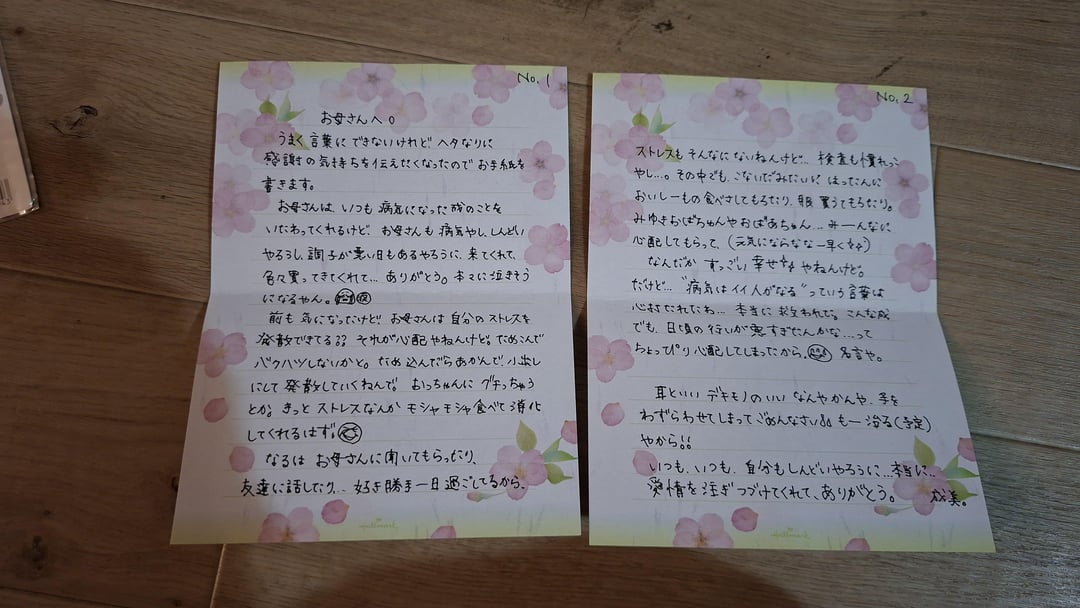 No.1
お母さんへ。
うまく言葉にできないけれど ヘタなりに
感謝の気持ちを伝えたくなったので お手紙を
書きます。
お母さんは、いつも 病気になった 成のことを
いたわってくれるけど、お母さんも 病気やし、しんどい
やろうし、調子が悪い日もあるやろうに、来てくれて、
色々買ってきてくれて… ありがとう。本々に泣きそう
になるやん。
前も 気になったけど、お母さんは 自分の ストレスを
発散できてる?? それが心配やねんけど。ためこんで
バクハツしないかと。ため込んだらあかんで、小出し
にして 発散していくねんで。おっちゃんに グチっちゃう
とか。きっと ストレスなんか モシャモシャ食べて 消化
してくれるはず。
なるは お母さんに聞いてもらったり、
友達に話したり… 好き勝手一日過ごしてるから、
Hallmark
No.2
ストレスも そんなに ないねんけど… 検査も慣れっこ
やし…。その中でも、こないだみたいに はったんに
おいしーもの食べさしてもろたり、服 買うてもろたり。
みゆきおばちゃんやおばあちゃん… みーんなに
心配してもらって、(元気にならなな一早く!!)
なんだか すっごい 幸せ やねんけど。
だけど… "病気は イイ人がなる" っていう言葉は
心打たれたわ… 本当に 救われた。こんな成
でも、日頃の行いが悪すぎたんかな…って
ちょっぴり心配してしまってたから。 名言や。
耳といい デキモノのいい なんやかんや、手を
わずらわせてしまって ごめんなさい!! もー治る(予定)
やから!!
いつも、いつも、自分もしんどいやろうに…本当に…
愛情を注ぎつづけてくれて、ありがとう。
成美。
Hallmark